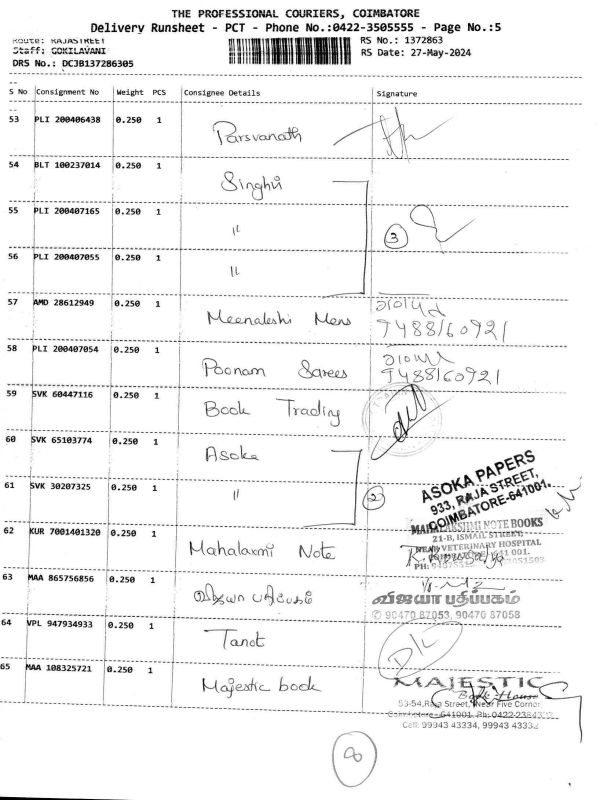 THE PROFESSIONAL COURIERS, COIMBATORE
Delivery Runsheet - PCT - Phone No.:0422-3505555 - Page No.:5
Route: RAJASTREET RS No.: 1372863
Staff: GOKILAVANI RS Date: 27-May-2024
DRS No.: DCJB137286305
S No Consignment No Weight PCS Consignee Details Signature
53 PLI 200406438 0.250 1 Parsvanath
54 BLT 100237014 0.250 1 Singhvi
55 PLI 200407165 0.250 1 "
3
56 PLI 200407055 0.250 1 "
57 AMD 28612949 0.250 1 Meenakshi Mens
9488160921
58 PLI 200407054 0.250 1 Poonam Sarees
9488160921
59 SVK 60447116 0.250 1 Book Trading
60 SVK 65103774 0.250 1 Asoka
ASOKA PAPERS
933, RAJA STREET,
COIMBATORE-641001.
61 SVK 30207325 0.250 1 "
2
62 KUR 7001401320 0.250 1 Mahalaxmi Note
MAHALAKSHMI NOTE BOOKS
21-B, ISMAIL STREET,
NEAR VETERINARY HOSPITAL
COIMBATORE-641 001.
63 MAA 865756856 0.250 1 விஜயா பதிப்பகம்
விஜயா பதிப்பகம்
✆ 90470 87053, 90470 87058
64 VPL 947934933 0.250 1 Tanot
65 MAA 108325721 0.250 1 Majestic book
MAJESTIC
Book House
53-54,Raja Street, Near Five Corner
Coimbatore - 641001. Ph: 0422-2384333
Cell: 99943 43334, 99943 43332
8